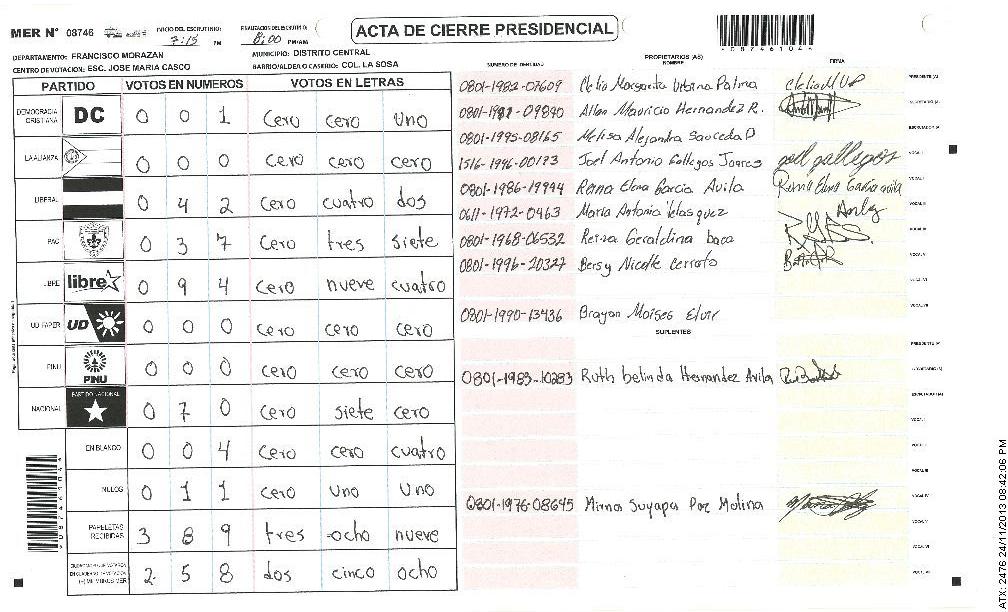 MER N° 08746 INICIO DEL ESCRUTINIO: 7:15 PM FINALIZACION DEL ESCRUTINIO: 8:00 PM/AM
ACTA DE CIERRE PRESIDENCIAL
DEPARTAMENTO: FRANCISCO MORAZAN MUNICIPIO: DISTRITO CENTRAL
CENTRO DE VOTACION: ESC. JOSE MARIA CASCO BARRIO/ALDEA O CASERIO: COL. LA SOSA
PARTIDO VOTOS EN NUMEROS VOTOS EN LETRAS
DEMOCRACIA CRISTIANA DC 0 0 1 cero cero uno
LA ALIANZA 0 0 0 cero cero cero
LIBERAL 0 4 2 cero cuatro dos
PAC 0 3 7 cero tres siete
LIBRE libre 0 9 4 cero nueve cuatro
UD FAPER UD 0 0 0 cero cero cero
PINU PINU 0 0 0 cero cero cero
NACIONAL PARTIDO NACIONAL 0 7 0 cero siete cero
EN BLANCO 0 0 4 cero cero cuatro
NULOS 0 1 1 cero uno uno
PAPELETAS RECIBIDAS 3 8 9 tres ocho nueve
2 5 8 dos cinco ocho
NUMERO DE IDENTIDAD PROPIETARIOS (AS) NOMBRE FIRMA
0801-1982-07609 Clelia Margarita Urbina Palma PRESIDENTE (A)
0801-1982-09890 Allan Mauricio Hernandez R. SECRETARIO (A)
0801-1995-08165 Melisa Alejandra Sauceda P ESCRUTADOR (A)
1516-1996-00173 Joel Antonio Gallegos Juarez joel gallegos VOCAL I
0801-1986-19994 Reina Elena Garcia Avila Reina Elena Garcia avila
0611-1972-0463 Maria Antonio Velasquez
0801-1968-06532 Reina Geraldina baca
0801-1996-20327 Bersy Nicolle cerrato
0801-1990-13436 Brayan Moises Elvir
SUPLENTES
PRESIDENTE (A)
0801-1983-10283 Ruth belinda Hernandez Avila SECRETARIO (A)
ESCRUTADOR (A)
0801-1976-08645 Mirna Suyapa Paz Molina
ATX: 2476 24/11/2013 08:42:06 PM